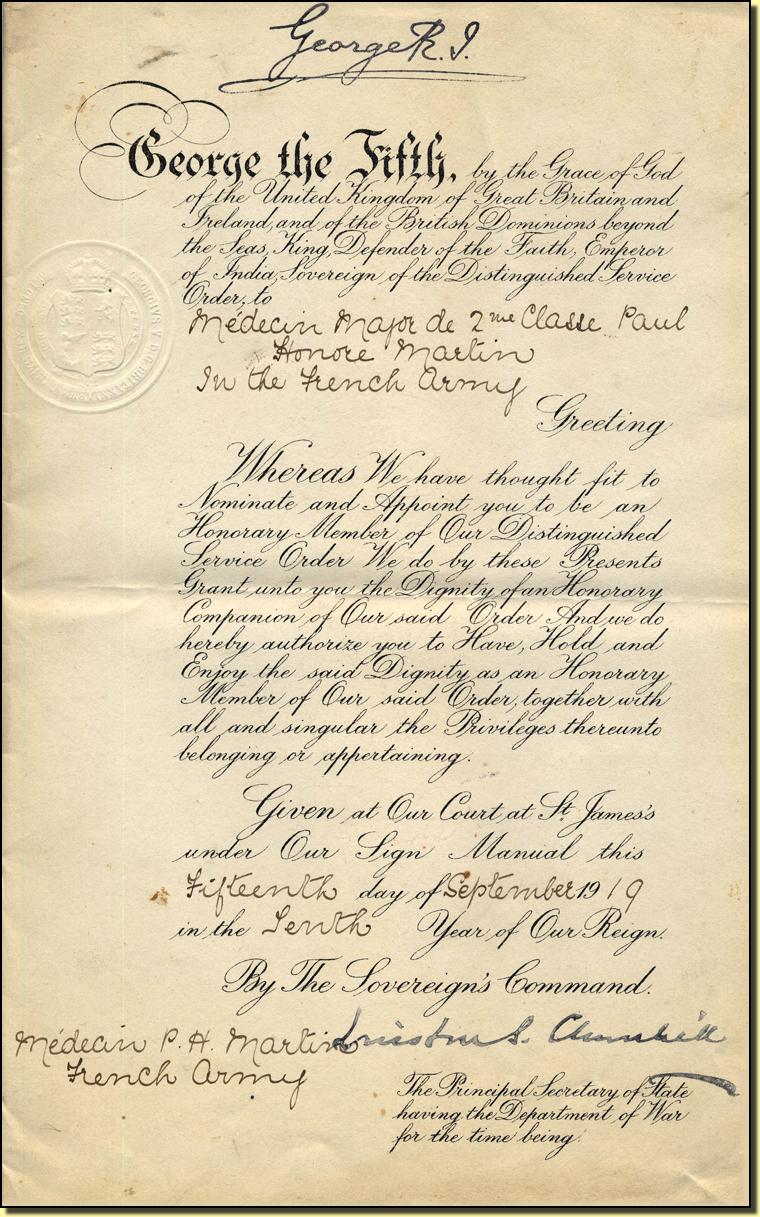 George R.I.
George the Fifth, by the Grace of God
of the United Kingdom of Great Britain and
Ireland, and of the British Dominions beyond
the Seas, King, Defender of the Faith, Emperor
of India, Sovereign of the Distinguished Service
Order, to
Médecin Major de 2me Classe Paul
Honore Martin
In the French Army
Greeting
Whereas We have thought fit to
Nominate and Appoint you to be an
Honorary Member of Our Distinguished
Service Order We do by these Presents
Grant unto you the Dignity of an Honorary
Companion of Our said Order And we do
hereby authorize you to Have, Hold and
Enjoy the said Dignity as an Honorary
Member of Our said Order, together with
all and singular the Privileges thereunto
belonging or appertaining.
Given at Our Court at St. James's
under Our Sign Manual this
Fifteenth day of September 1919
in the Tenth Year of Our Reign.
By The Sovereign's Command.
Médecin P. H. Martin
French Army
Winston S. Churchill
The Principal Secretary of State
having the Department of War
for the time being.